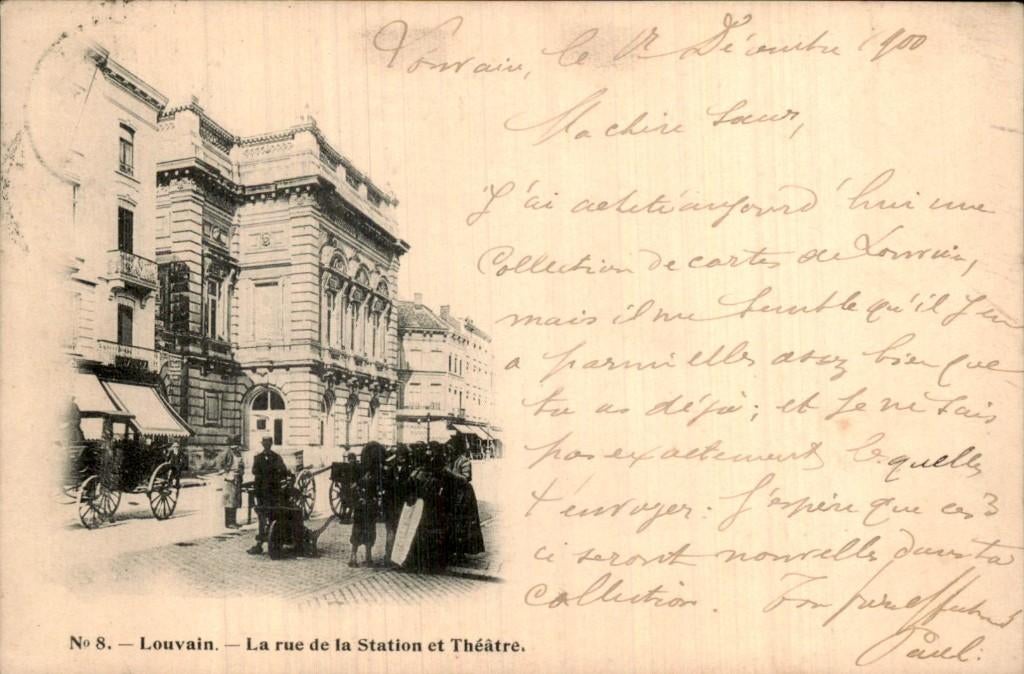 Louvain, le 12 Décembre 1900
Ma chère Sœur,
J'ai acheté aujourd'hui une
Collection de cartes de Louvain,
mais il me semble qu'il y en
a parmi elles assez bien que
tu as déjà; et je ne sais
pas exactement lesquelles
t'envoyer. J'espère que ces 3
ci seront nouvelles dans ta
collection. Ton frère affectionné
Paul.
No 8. — Louvain. — La rue de la Station et Théâtre.